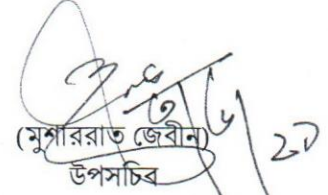 (মুশাররাত জেবীন)
উপসচিব